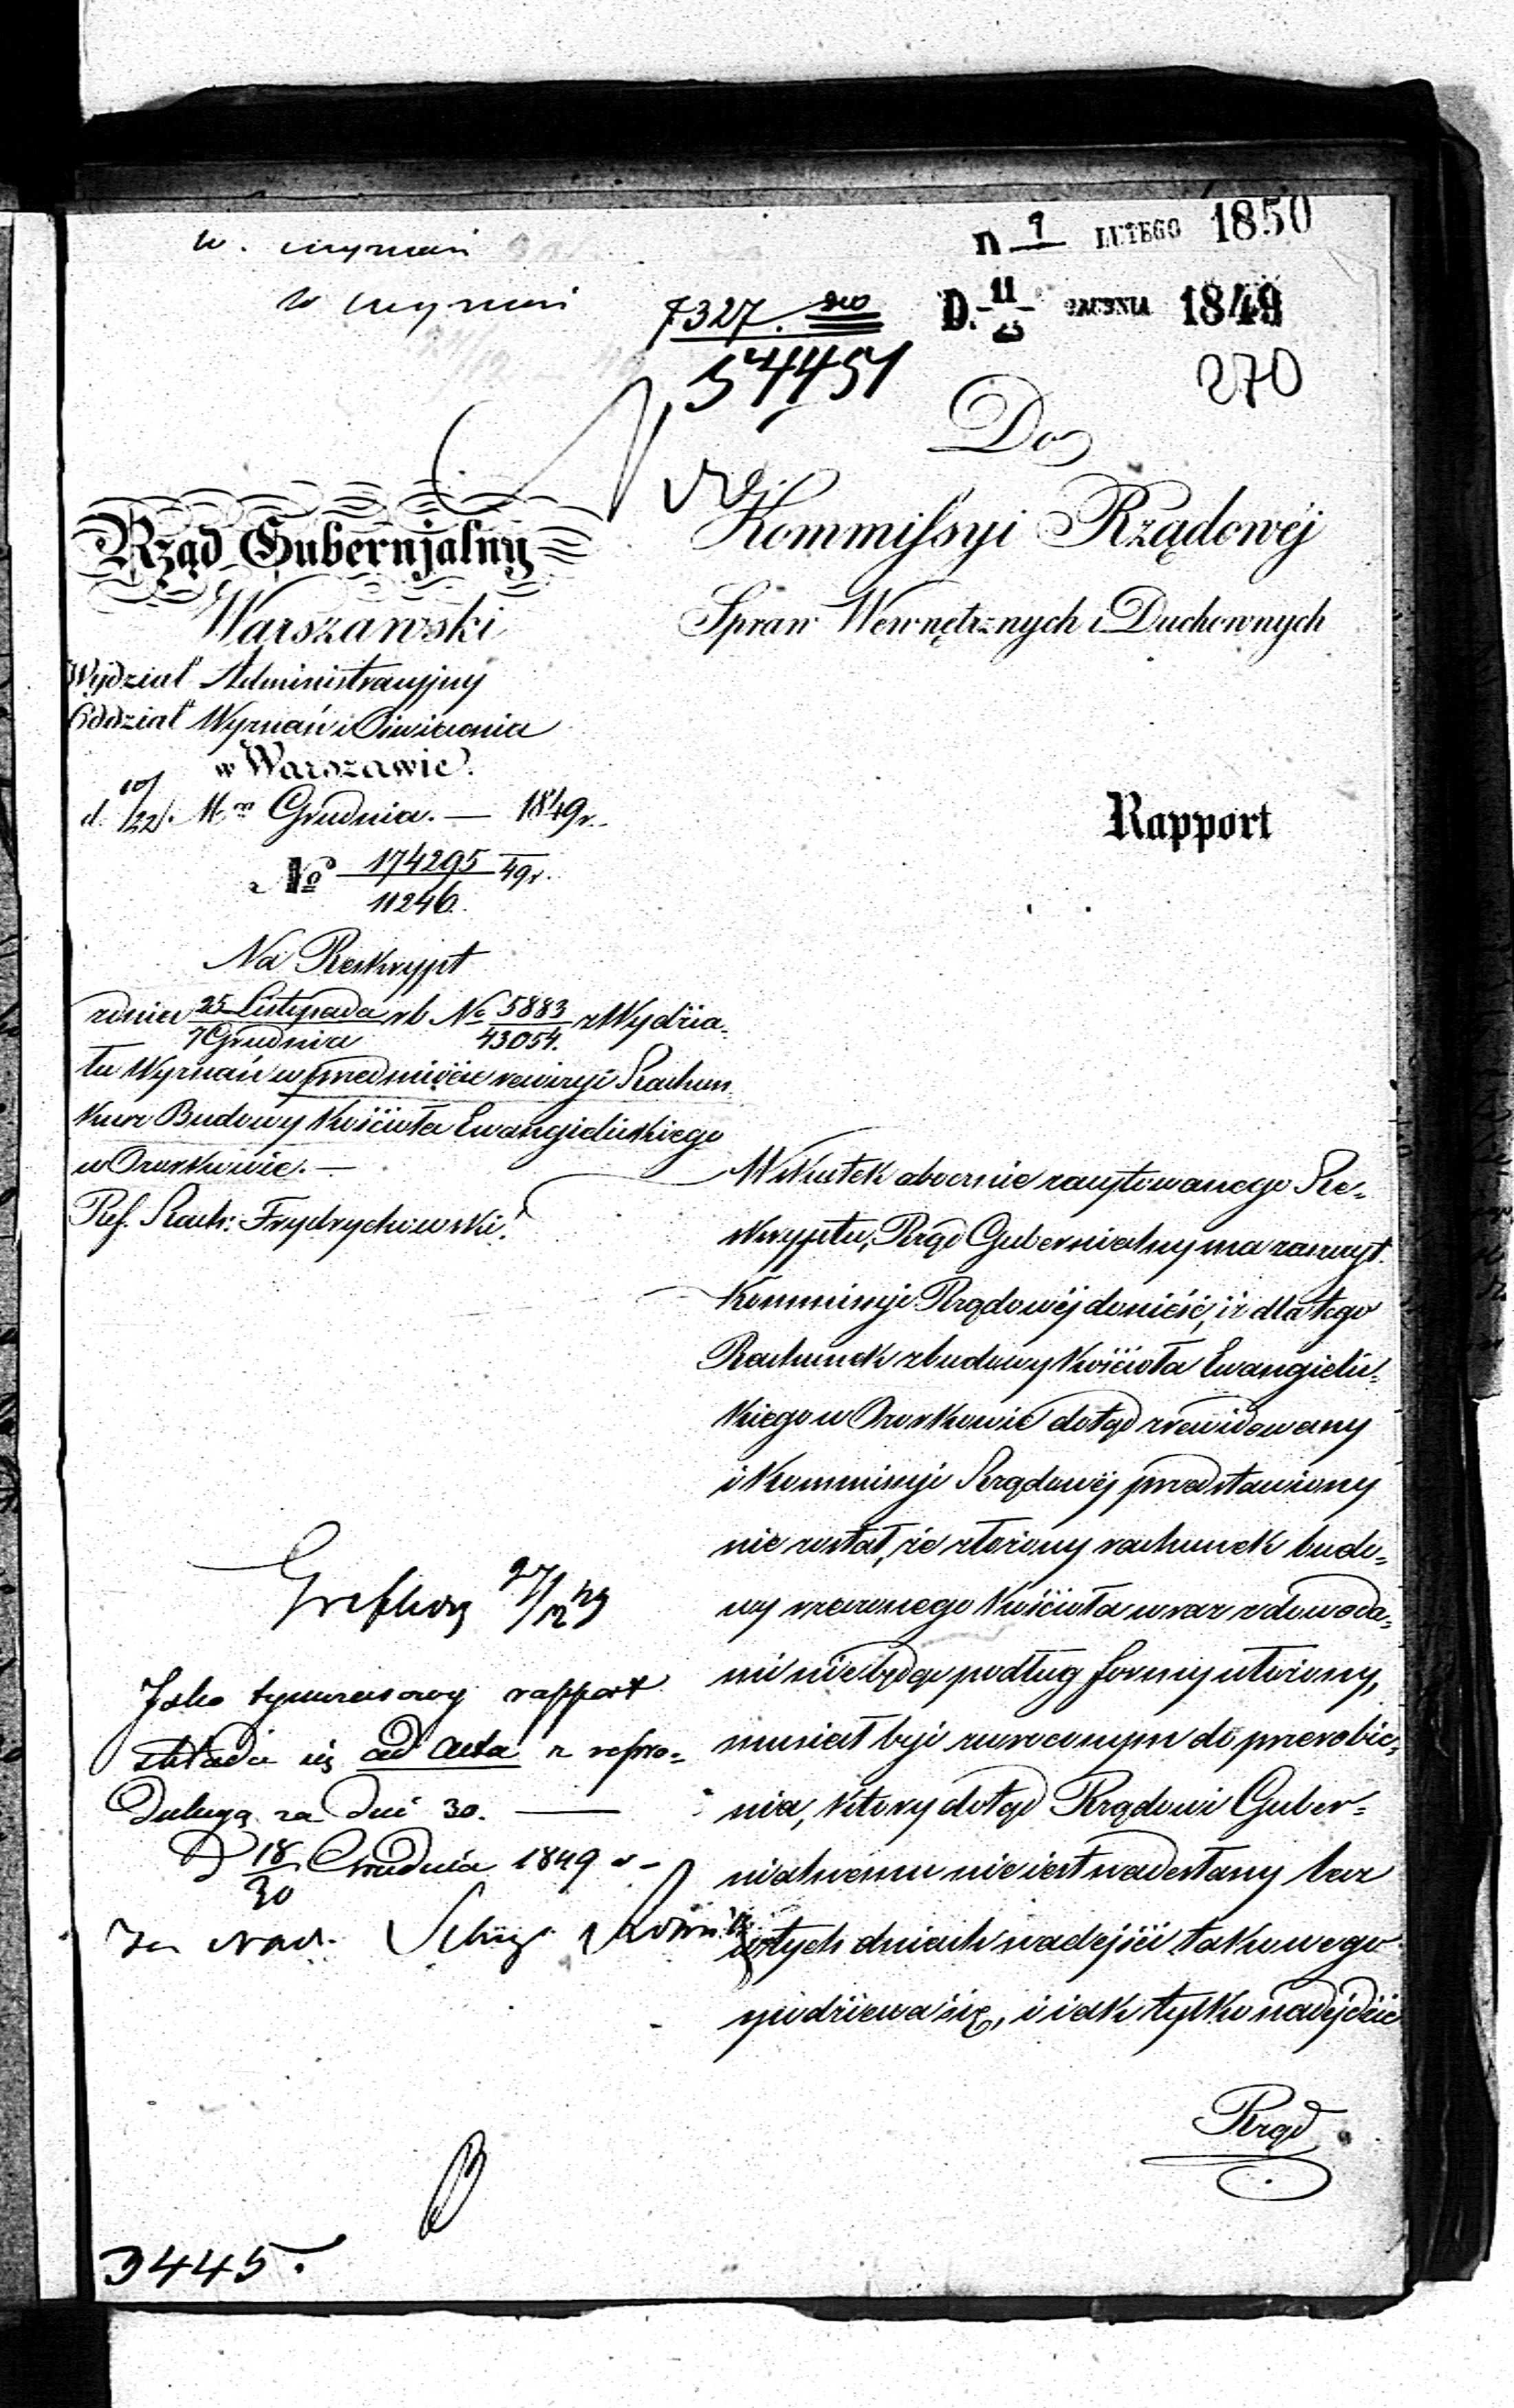 w. wyznań
w wyznań
n 9 LUTEGO 1850
7327.
D. 11 GRUDNIA 1849
54451
270
Do
Kommissyi Rządowéj
Spraw Wewnętrznych i Duchownych
Rząd Gubernjalny
Warszawski
Wydział Administracyjny
Oddział Wyznań i Oświecenia
w Warszawie.
d. 10/22. Mca Grudnia. — 1849 r.
No 174295/11246. 49 r.
Rapport
Na Reskrypt
z dnia 25 Listopada/7 Grudnia r b No 5883/43054. z Wydzia-
łu Wyznań w przedmiocie rewizyi Rachun
ków Budowy Kościoła Ewangielickiego
w Ozorkowie. —
Ref. Rach: Frydrychowski.
Wskutek obocznie zacytowanego Re-
skryptu, Rząd Gubernialny ma zaszczyt
Kommissyi Rządowéj donieść, iż dla tego
Rachunek z budowy Kościoła Ewangielic-
kiego w Ozorkowie dotąd zrewidowany
i Kommissyi Rządowéj przedstawiony
nie został, że złożony rachunek budo-
wy rzeczonego Kościoła wraz z dowoda-
mi nie będąc podług formy ułożony,
musiał być zwróconym do przerobie-
nia, który dotąd Rządowi Guber-
nialnemu nie iest nadesłany lecz
w tych dniach nadejści takowego
spodziewa się, i iak tylko nadejdzie
Rząd
27/12 49
Jako tymczasowy rapport
składa się ad acta z repro-
dukcyą za dni 30. —
D 18/30 Grudnia 1849 r —
Za Nacz.
3445.